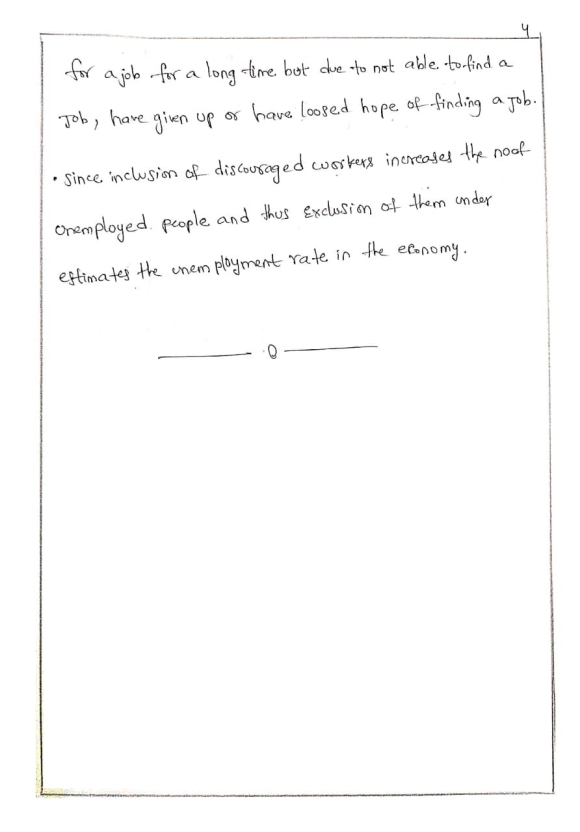 4
for a job for a long time but due to not able to find a
Job, have given up or have loosed hope of finding a Job.
• Since inclusion of discouraged workers increases the no of
unemployed people and thus Exclusion of them under
estimates the unemployment rate in the economy.